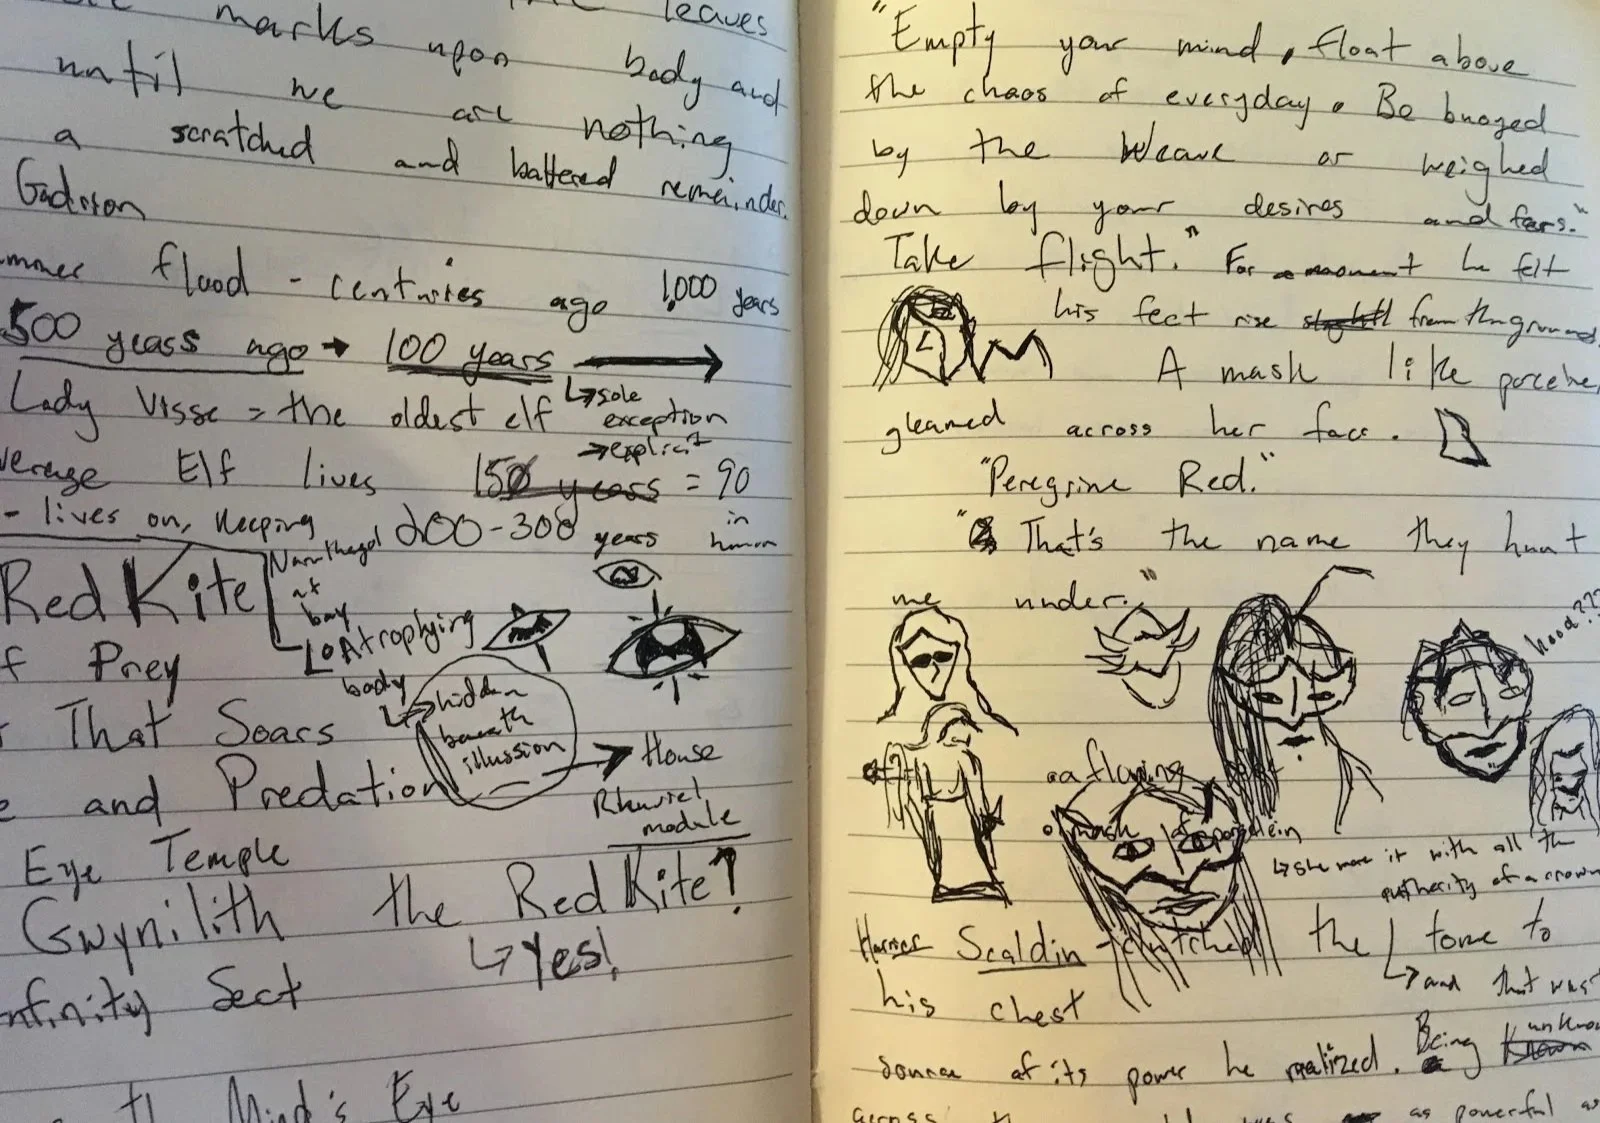 marks upon body and
leaves
until we are nothing
a scratched and battered remainder.
flood - centuries ago 1,000 years
500 years ago → 100 years
↳ sole exception
→ explicit
Lady Visse = the oldest elf
Elf lives 150 years = 90
in human
- lives on, keeping
200-300 years
at bay
Red Kite
↳ Atrophying body
↳ hidden beneath illussion
→ House
module
f Prey
That Soars
and Predation
Eye Temple
Gwynilith the Red Kite?
↳ Yes!
nfinity Sect
Mind's Eye
"Empty your mind, float above
the chaos of everyday. Be buoyed
by the Weave or weighed
down by your desires and fears."
Take flight." For a moment he felt
his feet rise from the ground
A mask like
gleamed across her face.
"Peregrine Red."
"That's the name they hunt
me under."
hood???
a flowing
mask of
↳ she wore it with all the
authority of a crown
Scaldin clutched the tome to
his chest
↳ and that was
source of its power he realized. Being
as powerful as